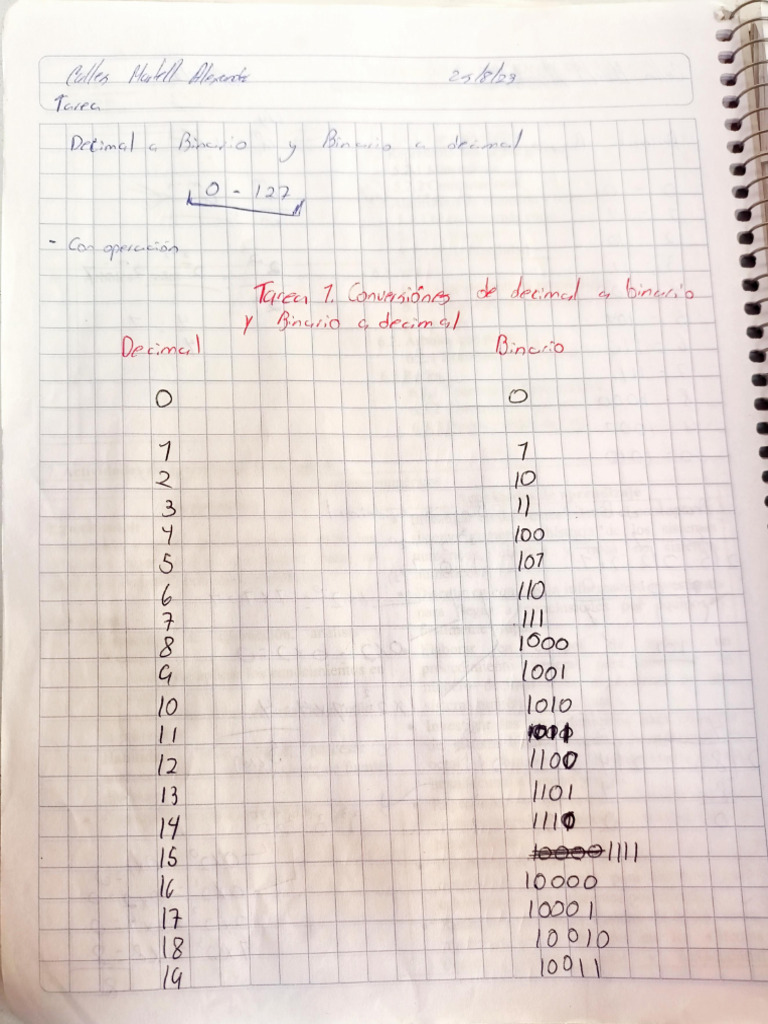 Calles Martell Alexands 25/8/23
Tarea
Decimal a Binario y Binario a decimal
0 - 127
- Con operación
Tarea 1. Conversiónes de decimal a binario
y Binario a decimal
Decimal Binario
0 0
1 1
2 10
3 11
4 100
5 101
6 110
7 111
8 1000
9 1001
10 1010
11
12 1100
13 1101
14 1110
15 10000 1111
16 10000
17 10001
18 10010
19 10011